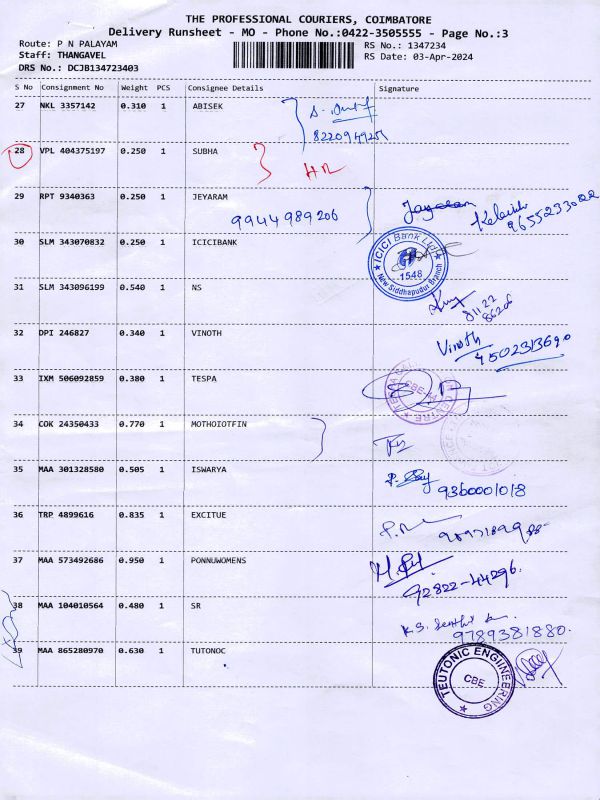 THE PROFESSIONAL COURIERS, COIMBATORE
Delivery Runsheet - MO - Phone No.:0422-3505555 - Page No.:3
Route: P N PALAYAM
RS No.: 1347234
Staff: THANGAVEL
RS Date: 03-Apr-2024
DRS No.: DCJB134723403
S No Consignment No Weight PCS Consignee Details Signature
27 NKL 3357142 0.310 1 ABISEK
28 VPL 404375197 0.250 1 SUBHA
29 RPT 9340363 0.250 1 JEYARAM
9944989206
Jayaram
9655233022
30 SLM 343070832 0.250 1 ICICIBANK
ICICI Bank Ltd
1548
New Siddhapudur Branch
31 SLM 343096199 0.540 1 NS
32 DPI 246827 0.340 1 VINOTH
Vinoth
33 IXM 506092859 0.380 1 TESPA
34 COK 24350433 0.770 1 MOTHOIOTFIN
35 MAA 301328580 0.505 1 ISWARYA
9360001018
36 TRP 4899616 0.835 1 EXCITUE
37 MAA 573492686 0.950 1 PONNUWOMENS
92822-44296
38 MAA 104010564 0.480 1 SR
K.S.
9789381880
39 MAA 865280970 0.630 1 TUTONOC
TEUTONIC ENGIINEERING
CBE